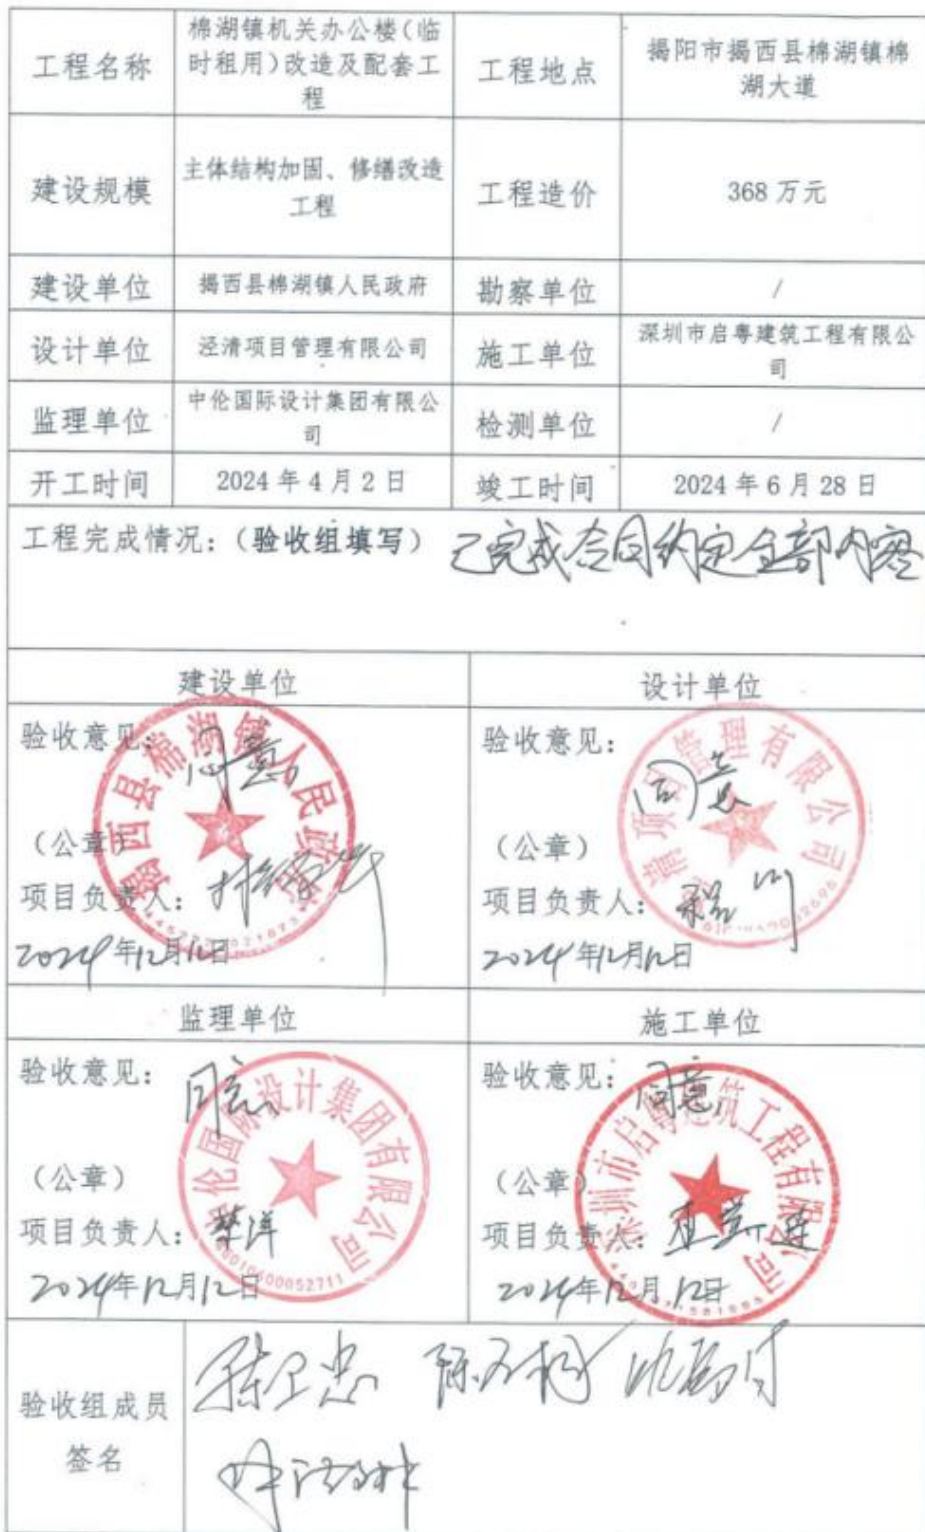 工程名称
棉湖镇机关办公楼(临
时租用)改造及配套工
程
工程地点
揭阳市揭西县棉湖镇棉
湖大道
建设规模
主体结构加固、修缮改造
工程
工程造价
368 万元
建设单位
揭西县棉湖镇人民政府
勘察单位
/
设计单位
泾清项目管理有限公司
施工单位
深圳市启粤建筑工程有限公
司
监理单位
中伦国际设计集团有限公
司
检测单位
/
开工时间
2024 年 4 月 2 日
竣工时间
2024 年 6 月 28 日
工程完成情况:(验收组填写) 已完成合同约定全部内容
建设单位
验收意见: 同意
(公章)
项目负责人:
2024年12月12日
揭西县棉湖镇人民政府
设计单位
验收意见: 同意
(公章)
项目负责人:
2024年12月12日
清项目管理有限公司
监理单位
验收意见: 同意
(公章)
项目负责人:
2024年12月12日
中伦国际设计集团有限公司
施工单位
验收意见: 同意
(公章)
项目负责人:
2024年12月12日
深圳市启粤建筑工程有限公司
验收组成员
签名